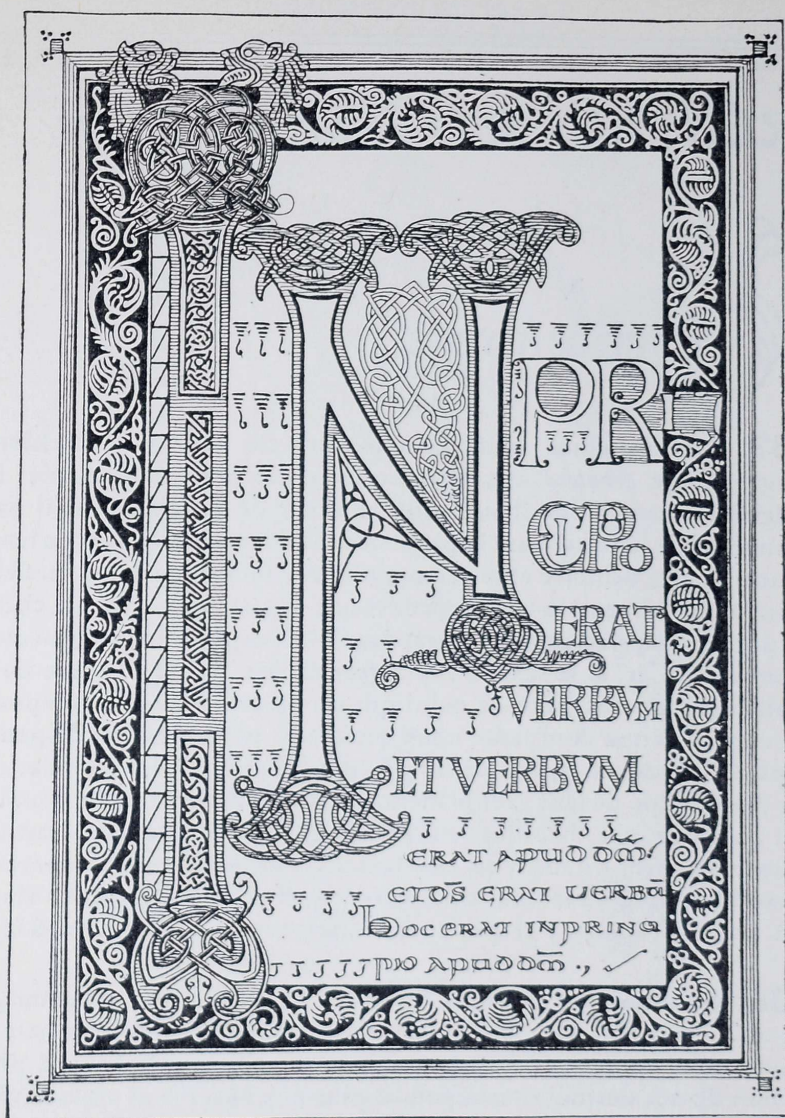 IN PRIN
CIPIO
ERAT
VERBVM
ET VERBVM
ERAT APUD DM̄
ET DS̄ ERAT UERBŪ
hOC ERAT IN PRINCI
PIO APUD DM̄ .,